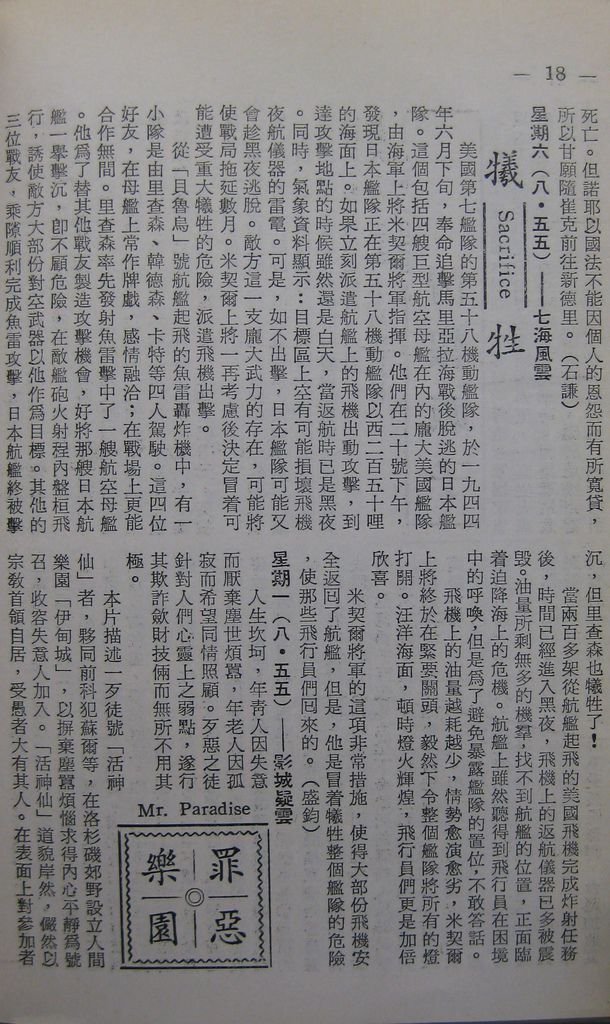 — 18 —
死亡。但諾耶以國法不能因個人的恩怨而有所寬貸，
所以甘願隨崔克前往新德里。（石謙）
星期六（八·五五）——七海風雲
犧 Sacrifice 牲
美國第七艦隊的第五十八機動艦隊，於一九四四
年六月下旬，奉命追擊馬里亞拉海戰後脫逃的日本艦
隊。這個包括四艘巨型航空母艦在內的龐大美國艦隊
，由海軍上將米契爾將軍指揮。他們在二十號下午，
發現日本艦隊正在第五十八機動艦隊以西二百五十哩
的海面上。如果立刻派遣航艦上的飛機出動攻擊，到
達攻擊地點的時候雖然還是白天，當返航時已是黑夜
。同時，氣象資料顯示：目標區上空有可能損壞飛機
夜航儀器的雷電。可是，如不出擊，日本艦隊可能又
會趁黑夜逃脫。敵方這一支龐大武力的存在，可能將
使戰局拖延數月。米契爾上將一再考慮後決定冒着可
能遭受重大犧牲的危險，派遣飛機出擊。
從「貝魯烏」號航艦起飛的魚雷轟炸機中，有一
小隊是由里查森、韓德森、卡特等四人駕駛。這四位
好友，在母艦上常作牌戲，感情融洽；在戰場上更能
合作無間。里查森率先發射魚雷擊中了一艘航空母艦
。他爲了替其他戰友製造攻擊機會，好將那艘日本航
艦一舉擊沉，卽不顧危險，在敵艦砲火射程內盤桓飛
行，誘使敵方大部份對空武器以他作爲目標。其他的
三位戰友，乘隙順利完成魚雷攻擊，日本航艦終被擊
沉，但里查森也犧牲了！
當兩百多架從航艦起飛的美國飛機完成炸射任務
後，時間已經進入黑夜，飛機上的返航儀器已多被震
毀。油量所剩無多的機羣，找不到航艦的位置，正面臨
着迫降海上的危機。航艦上雖然聽得到飛行員在困境
中的呼喚，但是爲了避免暴露艦隊的置位，不敢答話。
飛機上的油量越耗越少，情勢愈演愈劣，米契爾
上將終於在緊要關頭，毅然下令整個艦隊將所有的燈
打開。汪洋海面，頓時燈火輝煌，飛行員們更是加倍
欣喜。
米契爾將軍的這項非常措施，使得大部份飛機安
全返回了航艦，但是，他是冒着犧牲整個艦隊的危險
，使那些飛行員們囘來的。（盛鈞）
星期一（八·五五）——影城疑雲
Mr. Paradise
罪惡
樂園
人生坎坷，年靑人因失意
而厭棄塵世煩囂，年老人因孤
寂而希望同情照顧。歹惡之徒
針對人們心靈上之弱點，遂行
其欺詐歛財技倆而無所不用其
極。
本片描述一歹徒號「活神
仙」者，夥同前科犯蘇爾等，在洛杉磯郊野設立人間
樂園「伊甸城」，以摒棄塵囂煩惱求得內心平靜爲號
召，收容失意人加入。「活神仙」道貌岸然，儼然以
宗敎首領自居，受愚者大有其人。在表面上對參加者